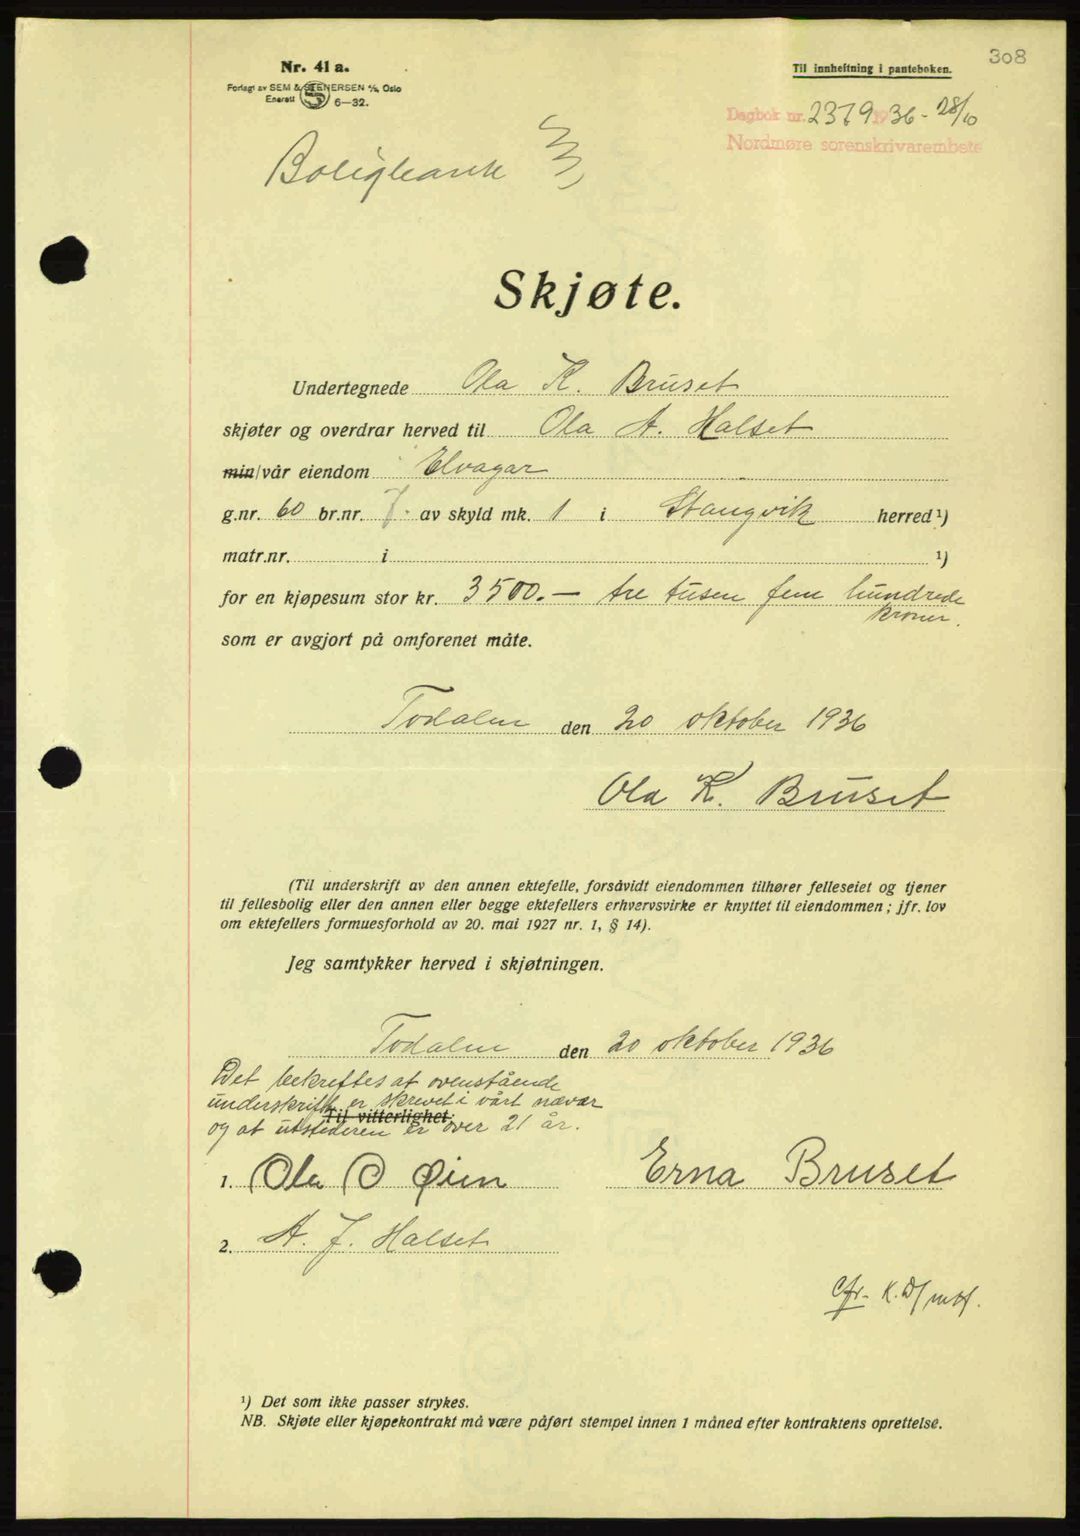 308
Nr. 41 a.
Forlagt av SEM & STENERSEN A/S, Oslo
Enerett 6—32.
Til innheftning i panteboken.
Dagbok nr. 2379 1936 - 28/10
Nordmøre sorenskrivarembete
Boligbank
Skjøte.
Undertegnede Ola K. Bruset
skjøter og overdrar herved til Ola A. Halset
min/vår eiendom Elvagar
g.nr. 60 br.nr. 7. av skyld mk. 1 i Stangvik herred ¹)
matr.nr. i ¹)
for en kjøpesum stor kr. 3500.— tre tusen fem hundrede
kroner.
som er avgjort på omforenet måte.
Todalen den 20 oktober 1936
Ola K. Bruset
(Til underskrift av den annen ektefelle, forsåvidt eiendommen tilhører felleseiet og tjener
til fellesbolig eller den annen eller begge ektefellers erhvervsvirke er knyttet til eiendommen; jfr. lov
om ektefellers formuesforhold av 20. mai 1927 nr. 1, § 14).
Jeg samtykker herved i skjøtningen.
Todalen den 20 oktober 1936
Det bekreftes at ovenstående
underskrift er skrevet i vårt nævær
Til vitterlighet:
og at utstederen er over 21 år.
1. Ola O Øien Erna Bruset
2. A. J. Halset
Cfr. K.D/
¹) Det som ikke passer strykes.
NB. Skjøte eller kjøpekontrakt må være påført stempel innen 1 måned efter kontraktens oprettelse.